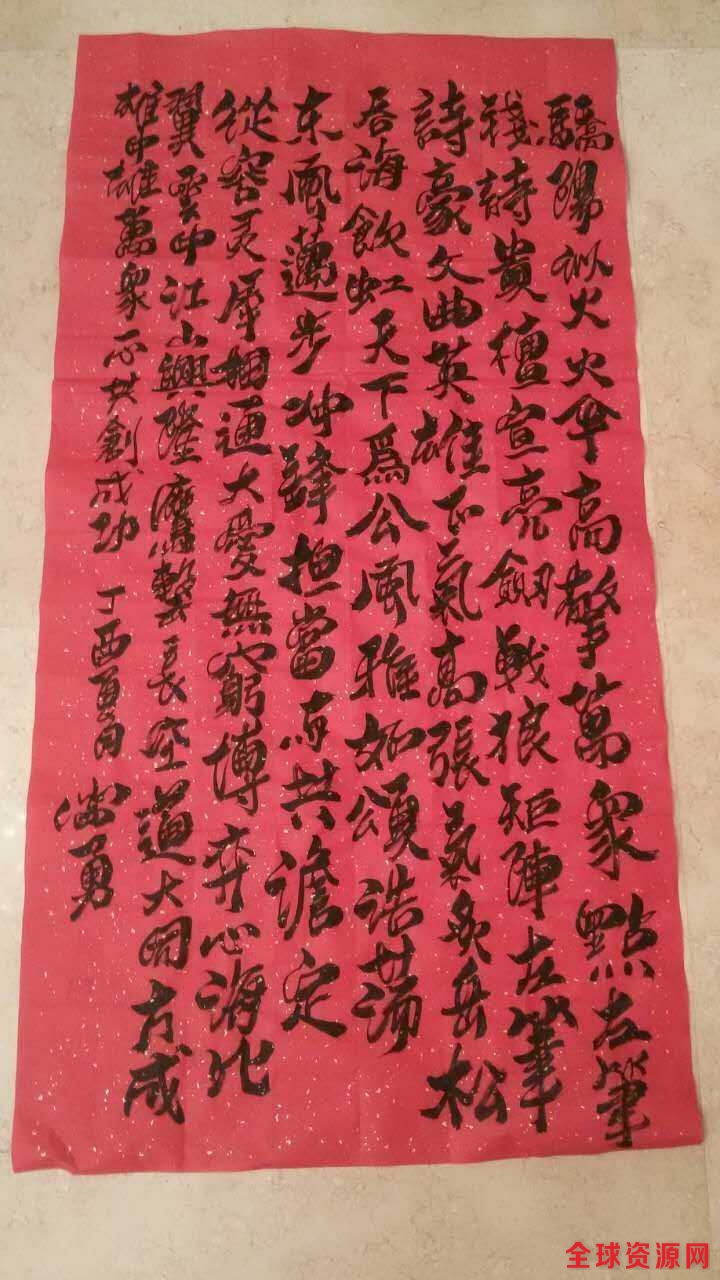 驕陽似火火傘高擎萬眾點左筆
我詩貴檀宣亮劍戰狼矩陣左筆
詩豪文曲英雄正氣高張氣炙岳松
吞海飲虹天下爲公風雅如頌浩蕩
东風邁步冲鋒担當与共澹定
從容灵犀相通大愛無窮博弈心海比
翼雲中江山興隆鷹擊長空道大同方成
雄中雄萬眾一心共創成功 丁酉夏月 勇
全球资源网